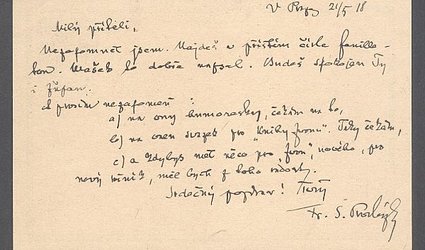 V Praze 21/5 18
Milý příteli,
Nezapomněl jsem. Najdeš v příštím čísle feuille-
ton. Mašek to dobře napsal. Budeš spokojen Ty
i Žufan.
A prosím nezapomeň:
a) na ony humoresky, čekám na to,
b) na onen svazek pro „Knihy Jvonu". Též čekám,
c) a kdybys měl něco pro „Jvon", nového, pro
nový ročník, měl bych z toho radost.
Srdečný pozdrav! Tvůj
Fr. S. Procházka